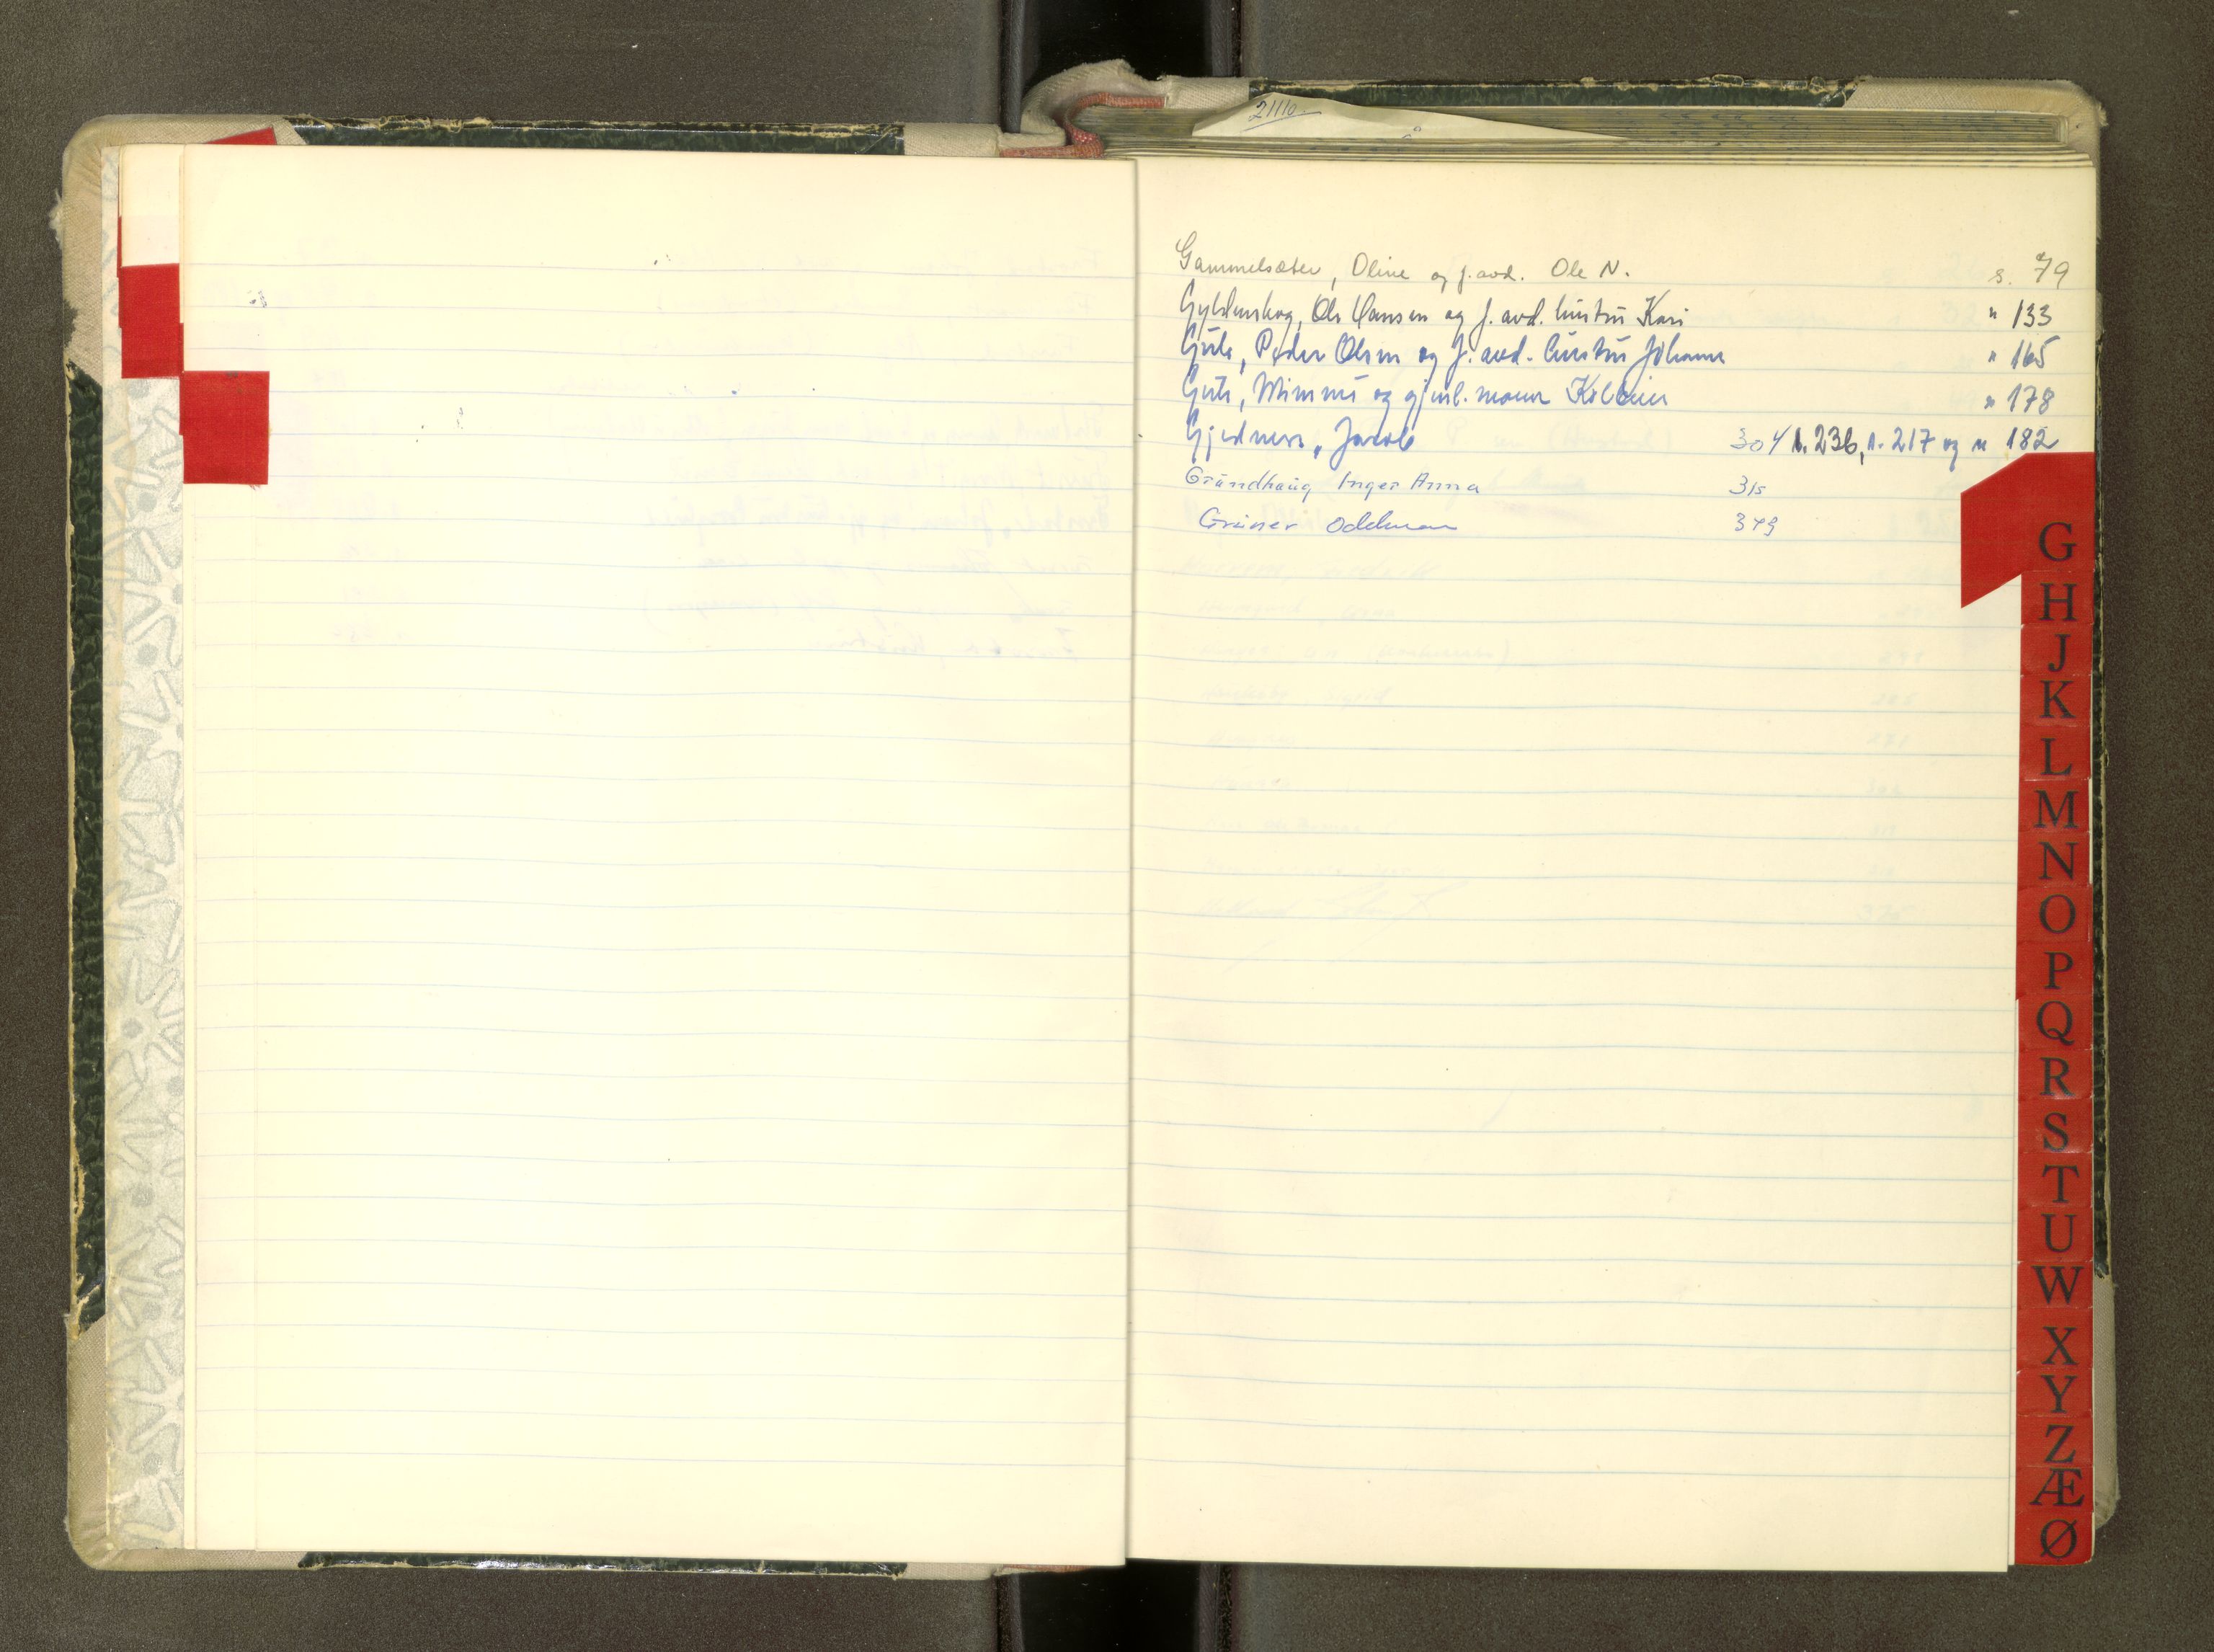 21110
Gammelsæter, Oline og f. avd. Ole N. s. 79
Gyldenskog, Ole Hansen og f. avd. hustru Kari " 133
Gule, Peder Olsen og f. avd. hustru Johanna " 165
Gule, Mimmi og gjenl. mann Kolbein " 178
Gjedness, Jacob 304 s. 236, s. 217 og " 182
Grandhaug Inger Anna 315
Grüner Oddmar 349
G
H
J
K
L
M
N
O
P
Q
R
S
T
U
W
X
Y
Z
Æ
Ø